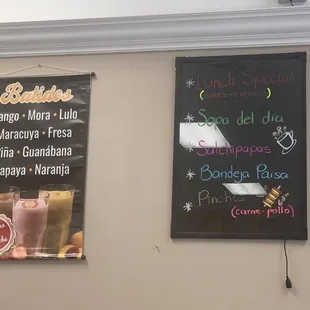 Batidos
ango • Mora • Lulo
Maracuya • Fresa
Piña • Guanábana
apaya • Naranja
Lunch Special
(lunes-viernes)
* Sopa del día
* Salchipapas
* Bandeja Paisa
* Pinchos
(carne-pollo)